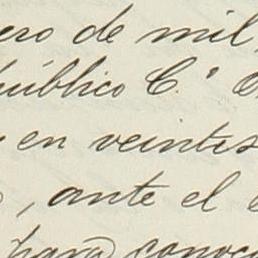 ero de mil
público C.º
en veintis
, ante el
para conoc